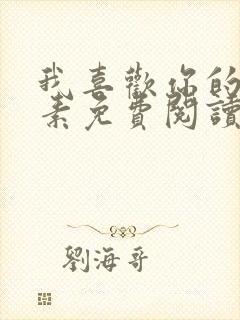 我喜歡你的
素免費閱讀
劉海哥